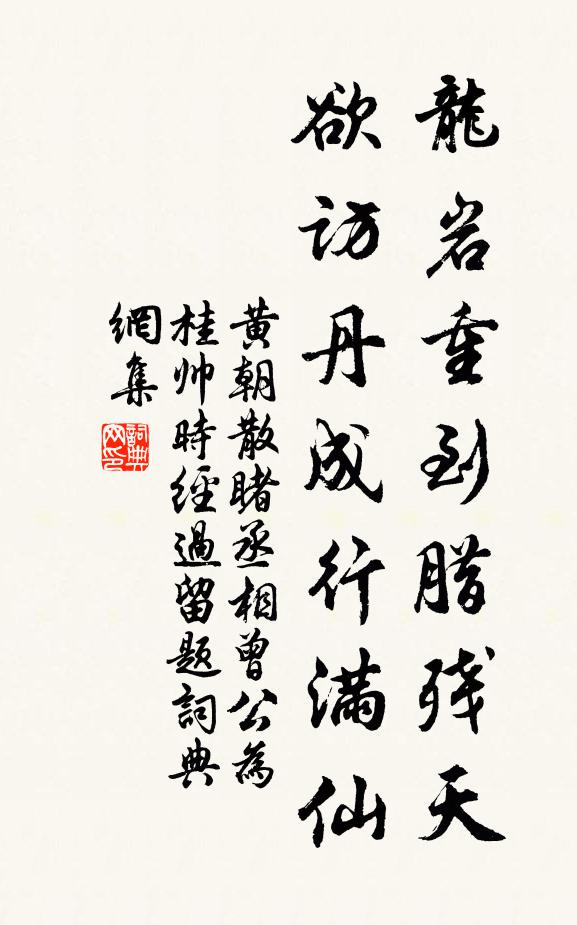 龍岩重到腊残天
欲访丹成行满仙
黄朝散睹丞相曾公為
桂帅時經過留题詞典
網集
詞典
网印